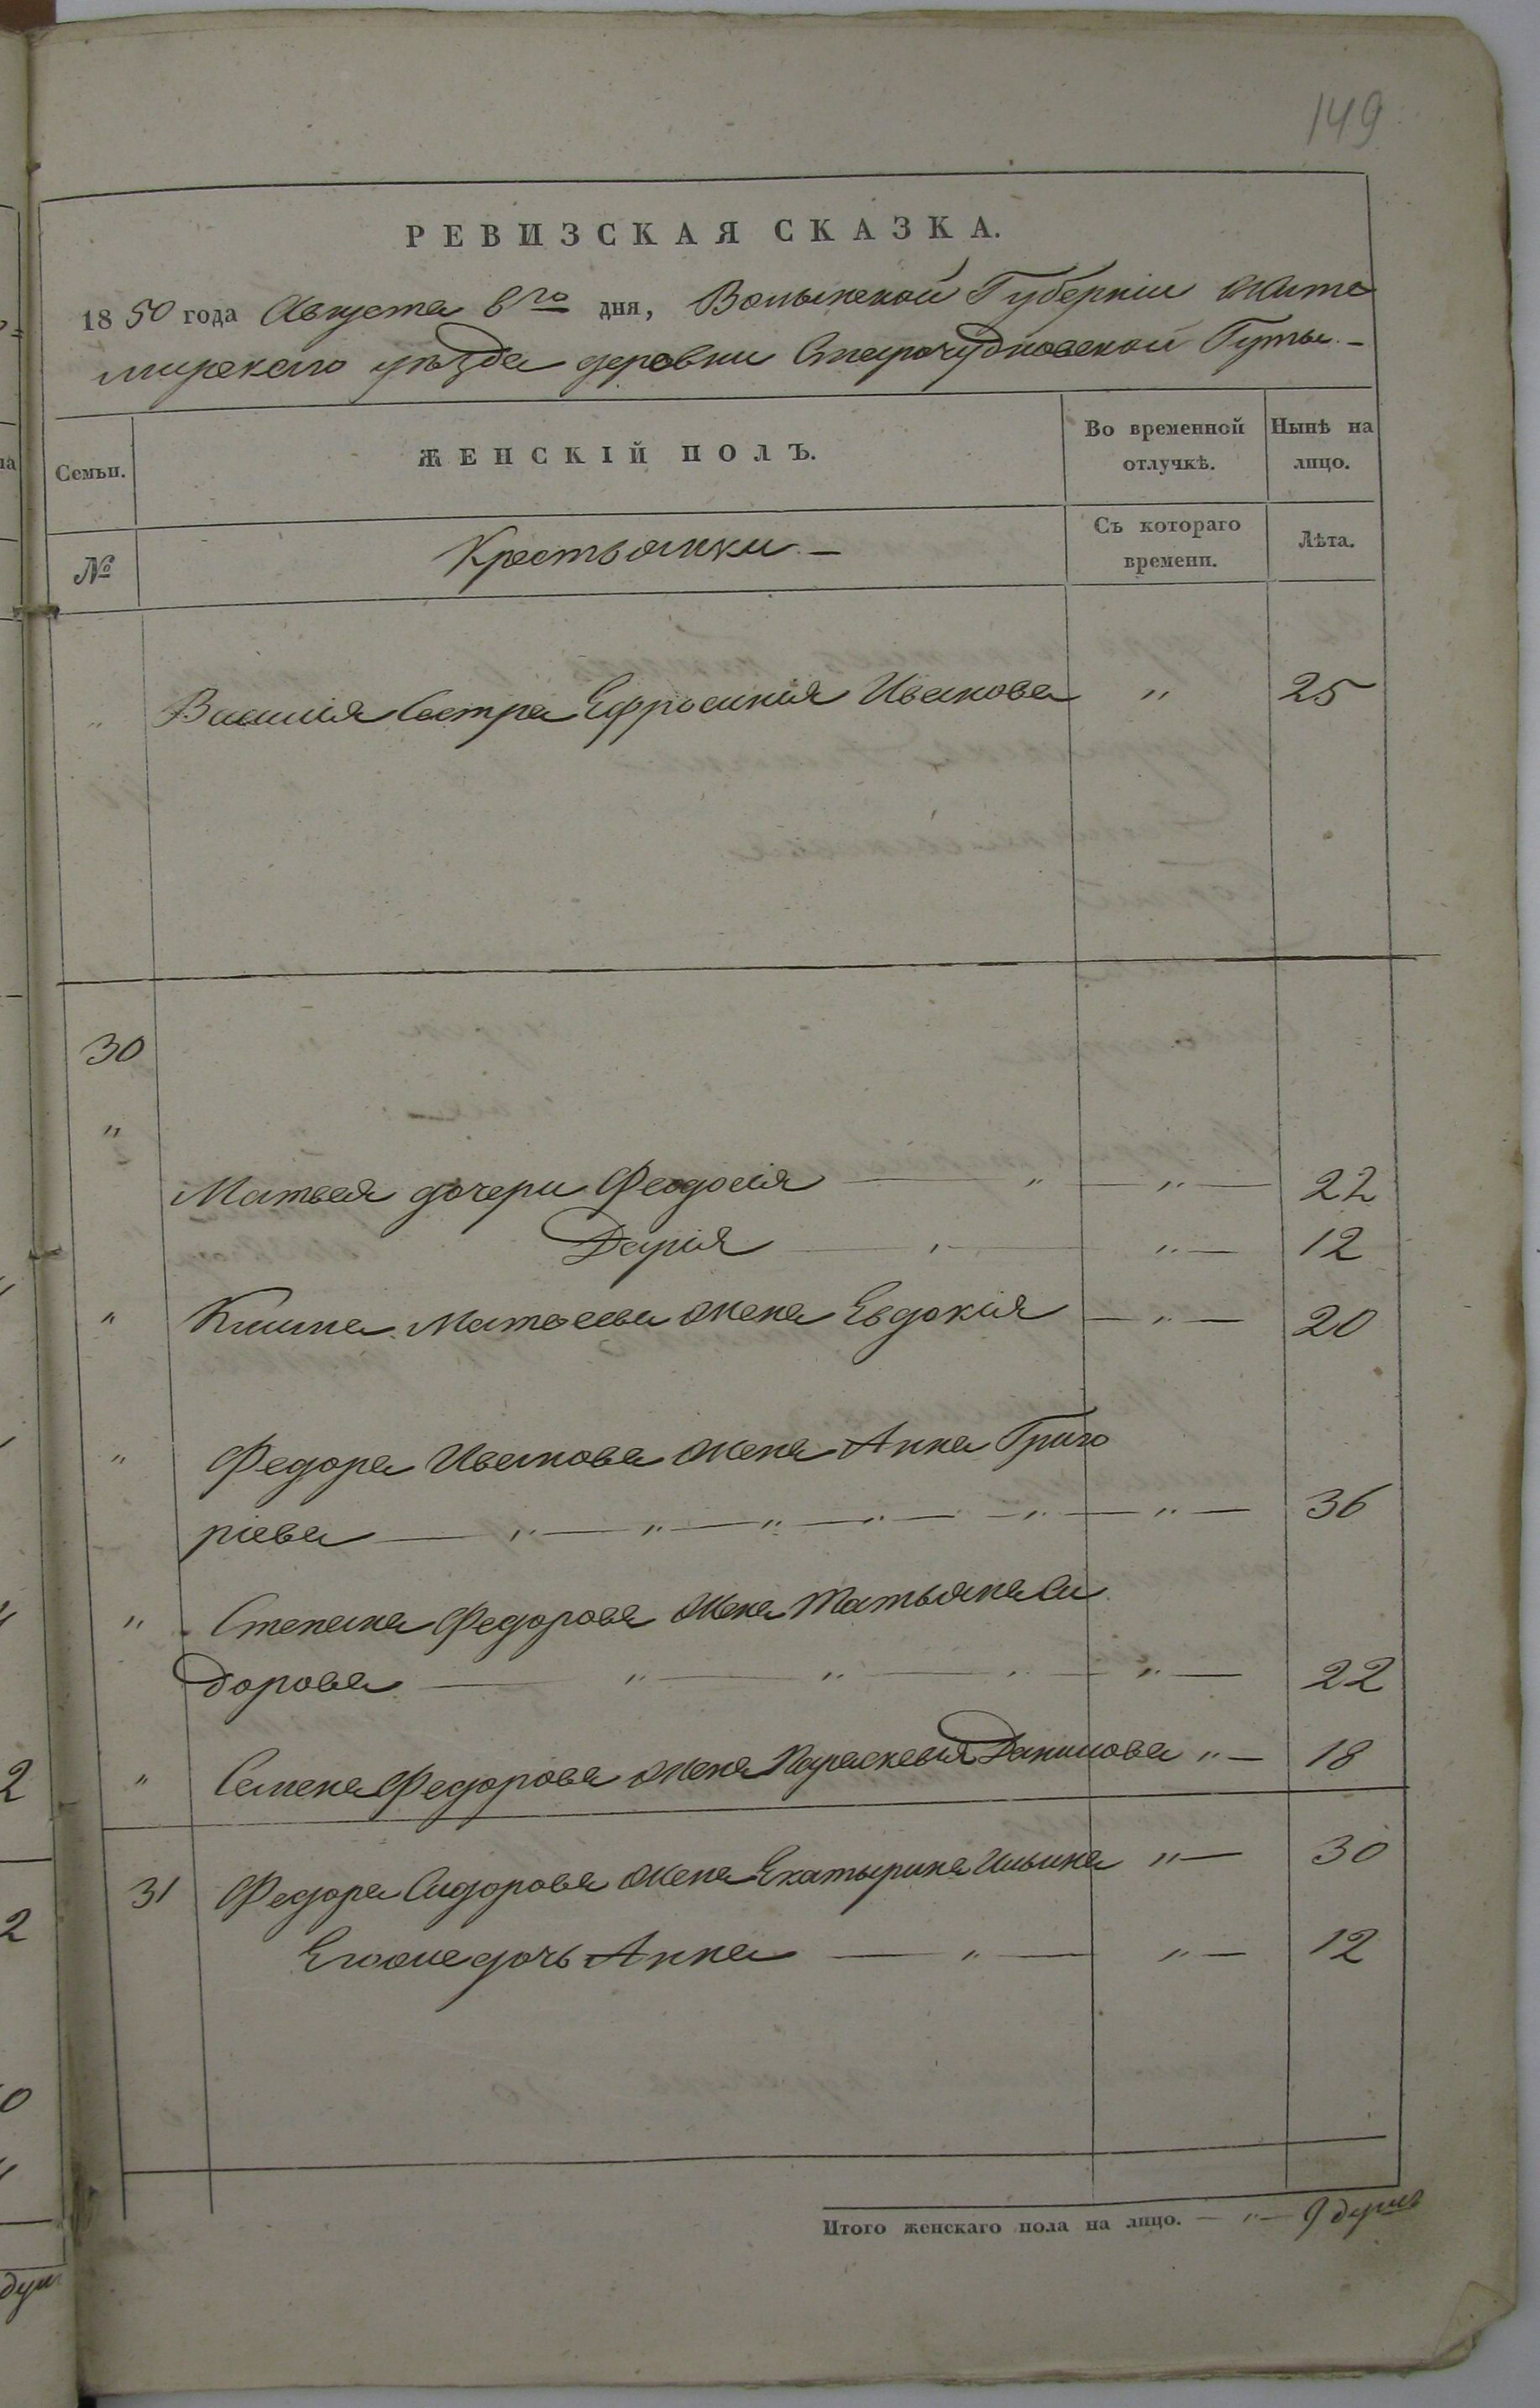 149
РЕВИЗСКАЯ СКАЗКА.
1850 года Августа 6го дня, Волынской Губерніи Жито
мирскаго уѣзда деревни Старочудновской Гуты.-
Семьи.
ЖЕНСКІЙ ПОЛЪ.
Во временной отлучкѣ.
Нынѣ на лицо.
№
Крестьянки-
Съ котораго времени.
Лѣта.
" Василія Сестра Ефросинія Иванова " 25
30
"
Матвея дочери Феодосія — " — " — 22
Дарія — " — " — 12
" Клима Матвеева жена Евдокія — " — 20
" Федора Иванова жена Анна Григо
ріева — " — " — " — " — " — " — 36
" Степана Федорова жена Татьяна Си
дорова — " — " — " — " — 22
" Семена Федорова жена Параскевія Данилова " — 18
31 Федора Сидорова жена Екатырина Ильина " — 30
Егоже дочь Анна — " — " — 12
Итого женскаго пола на лицо. — " — 9 душъ